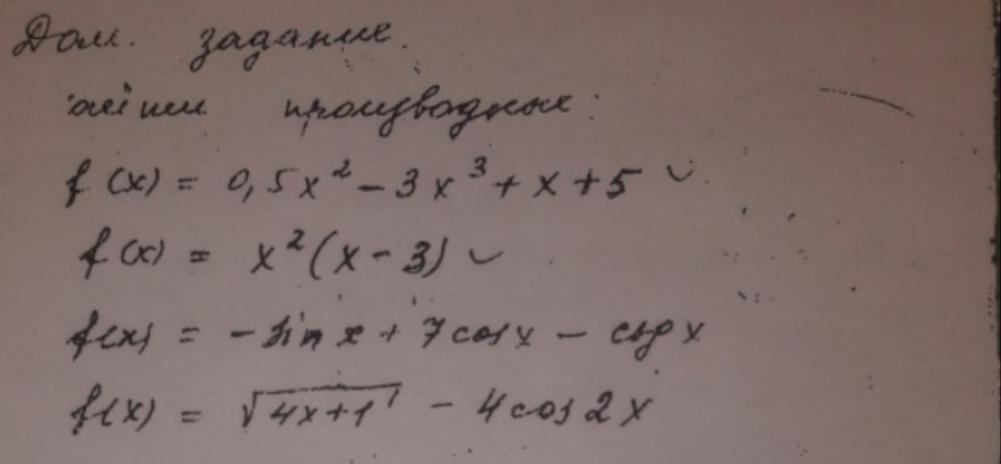 Дом. задание.
айти производные:
f(x) = 0,5x² - 3x³ + x + 5
f(x) = x²(x - 3)
f(x) = -sin x + 7cosx - ctg x
f(x) = √(4x+1) - 4cos2x